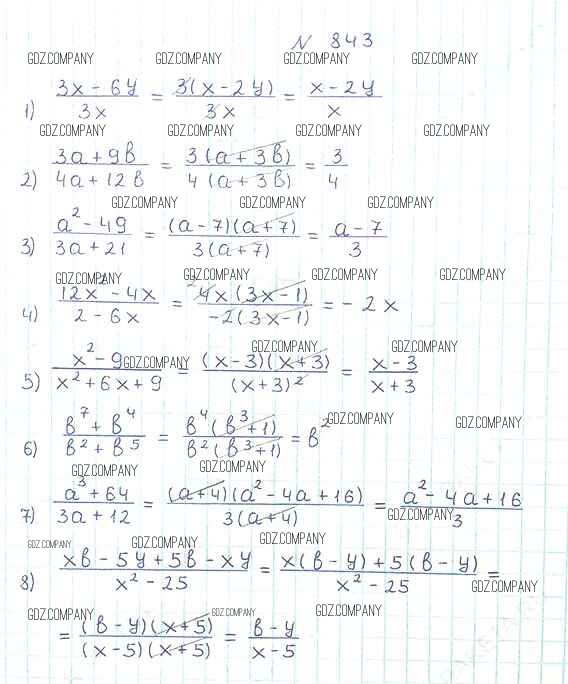 N 843
GDZ.COMPANY GDZ.COMPANY GDZ.COMPANY GDZ.COMPANY
1) (3x - 6y)/(3x) = (3(x - 2y))/(3x) = (x - 2y)/x
GDZ.COMPANY GDZ.COMPANY GDZ.COMPANY GDZ.COMPANY
2) (3a + 9в)/(4a + 12в) = (3(a + 3в))/(4(a + 3в)) = 3/4
GDZ.COMPANY GDZ.COMPANY GDZ.COMPANY
3) (a² - 49)/(3a + 21) = ((a - 7)(a + 7))/(3(a + 7)) = (a - 7)/3
GDZ.COMPANY GDZ.COMPANY GDZ.COMPANY GDZ.COMPANY
4) (12x² - 4x)/(2 - 6x) = ²(4x(3x - 1))/(-2(3x - 1)) = - 2x
GDZ.COMPANY GDZ.COMPANY GDZ.COMPANY
5) (x² - 9)/(x² + 6x + 9) = ((x - 3)(x + 3))/((x + 3)²) = (x - 3)/(x + 3)
GDZ.COMPANY GDZ.COMPANY
6) (в⁷ + в⁴)/(в² + в⁵) = (в⁴(в³ + 1))/(в²(в³ + 1)) = в²
GDZ.COMPANY GDZ.COMPANY
7) (a³ + 64)/(3a + 12) = ((a + 4)(a² - 4a + 16))/(3(a + 4)) = (a² - 4a + 16)/3
GDZ.COMPANY
GDZ.COMPANY GDZ.COMPANY GDZ.COMPANY
8) (xв - 5y + 5в - xy)/(x² - 25) = (x(в - y) + 5(в - y))/(x² - 25) =
GDZ.COMPANY
GDZ.COMPANY GDZ.COMPANY GDZ.COMPANY
= ((в - y)(x + 5))/((x - 5)(x + 5)) = (в - y)/(x - 5)